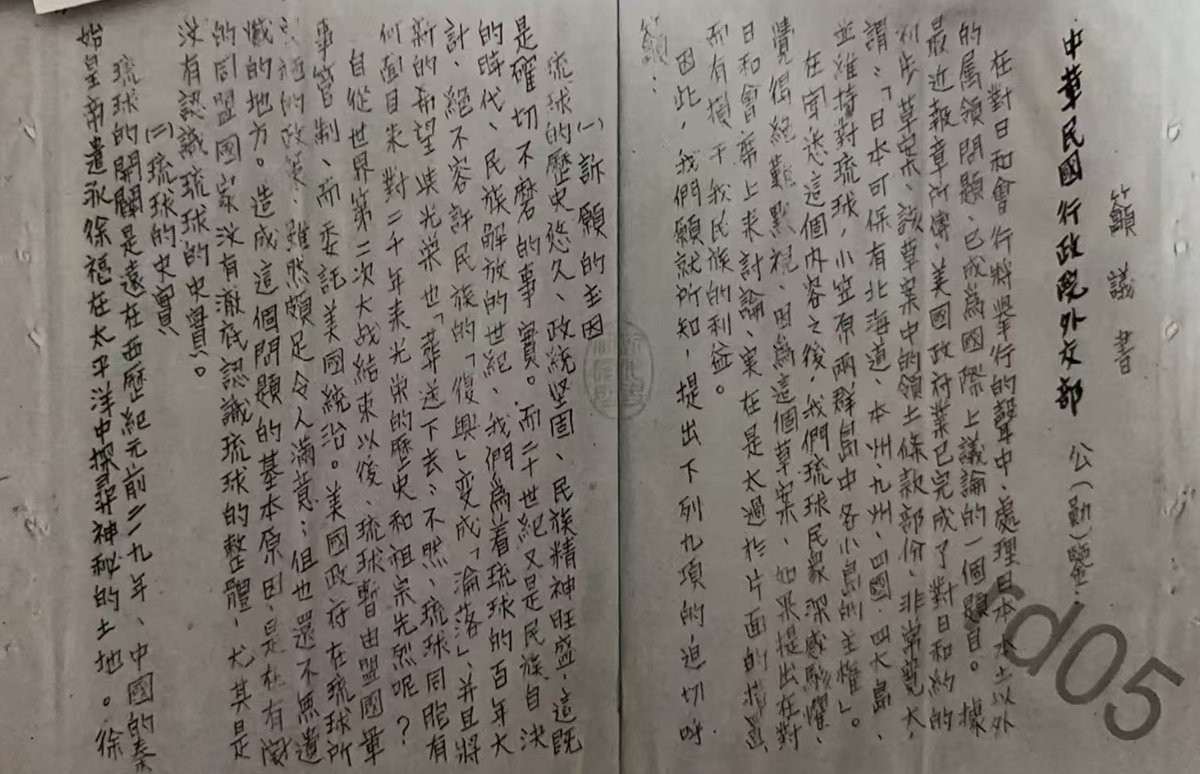 籲議書
中華民國行政院外交部 公(勛)鑒:
在對日和會行將舉行的聲中、處理日本本土以外
的屬領問題、已成為國際上議論的一個題目。據
最近報章所傳、美國政府業已完成了對日和約的
初步草案、該草案中的領土條款部份、非常寬大、
謂:「日本可保有北海道、本州、九州、四國、四大島、
並維持對琉球,小笠原兩群島中各小島的主權」。
在聞悉這個內容之後,我們琉球民眾深感駭懼、
覺得絕難默視、因為這個草案、如果提出在對
日和會席上來討論、实在是太過於片面的
而有損于我民族的利益。
因此,我們願就所知,提出下列九項的迫切呼
籲:
(一)訴願的主因
琉球的歷史悠久、政統坚固、民族精神旺盛、這既
是確切不磨的事實。而二十世紀又是民族自決
的時代、民族解放的世紀、我們為着琉球的百年大
計、絕不容許民族的「復興」变成「淪落」、并且將
新的希望與光榮也「葬送下去、不然、琉球同胞有
何面目来對二千年来光榮的歷史和祖宗先烈呢?
自從世界第二次大战結束以後、琉球暫由盟國軍
事管制、而委託美國統治。美國政府在琉球所
的政策、雖然頗足令人滿意;但也還不無遺
憾的地方。造成這個問題的基本原因、是在有
的同盟國家没有澈底認識琉球的整體、尤其是
没有認識琉球的史實。
(二)琉球的史實
琉球的開闢是遠在西歷紀元前二一九年、中國的秦
始皇帝遣派徐福在太平洋中探尋神秘的土地。徐
rd05